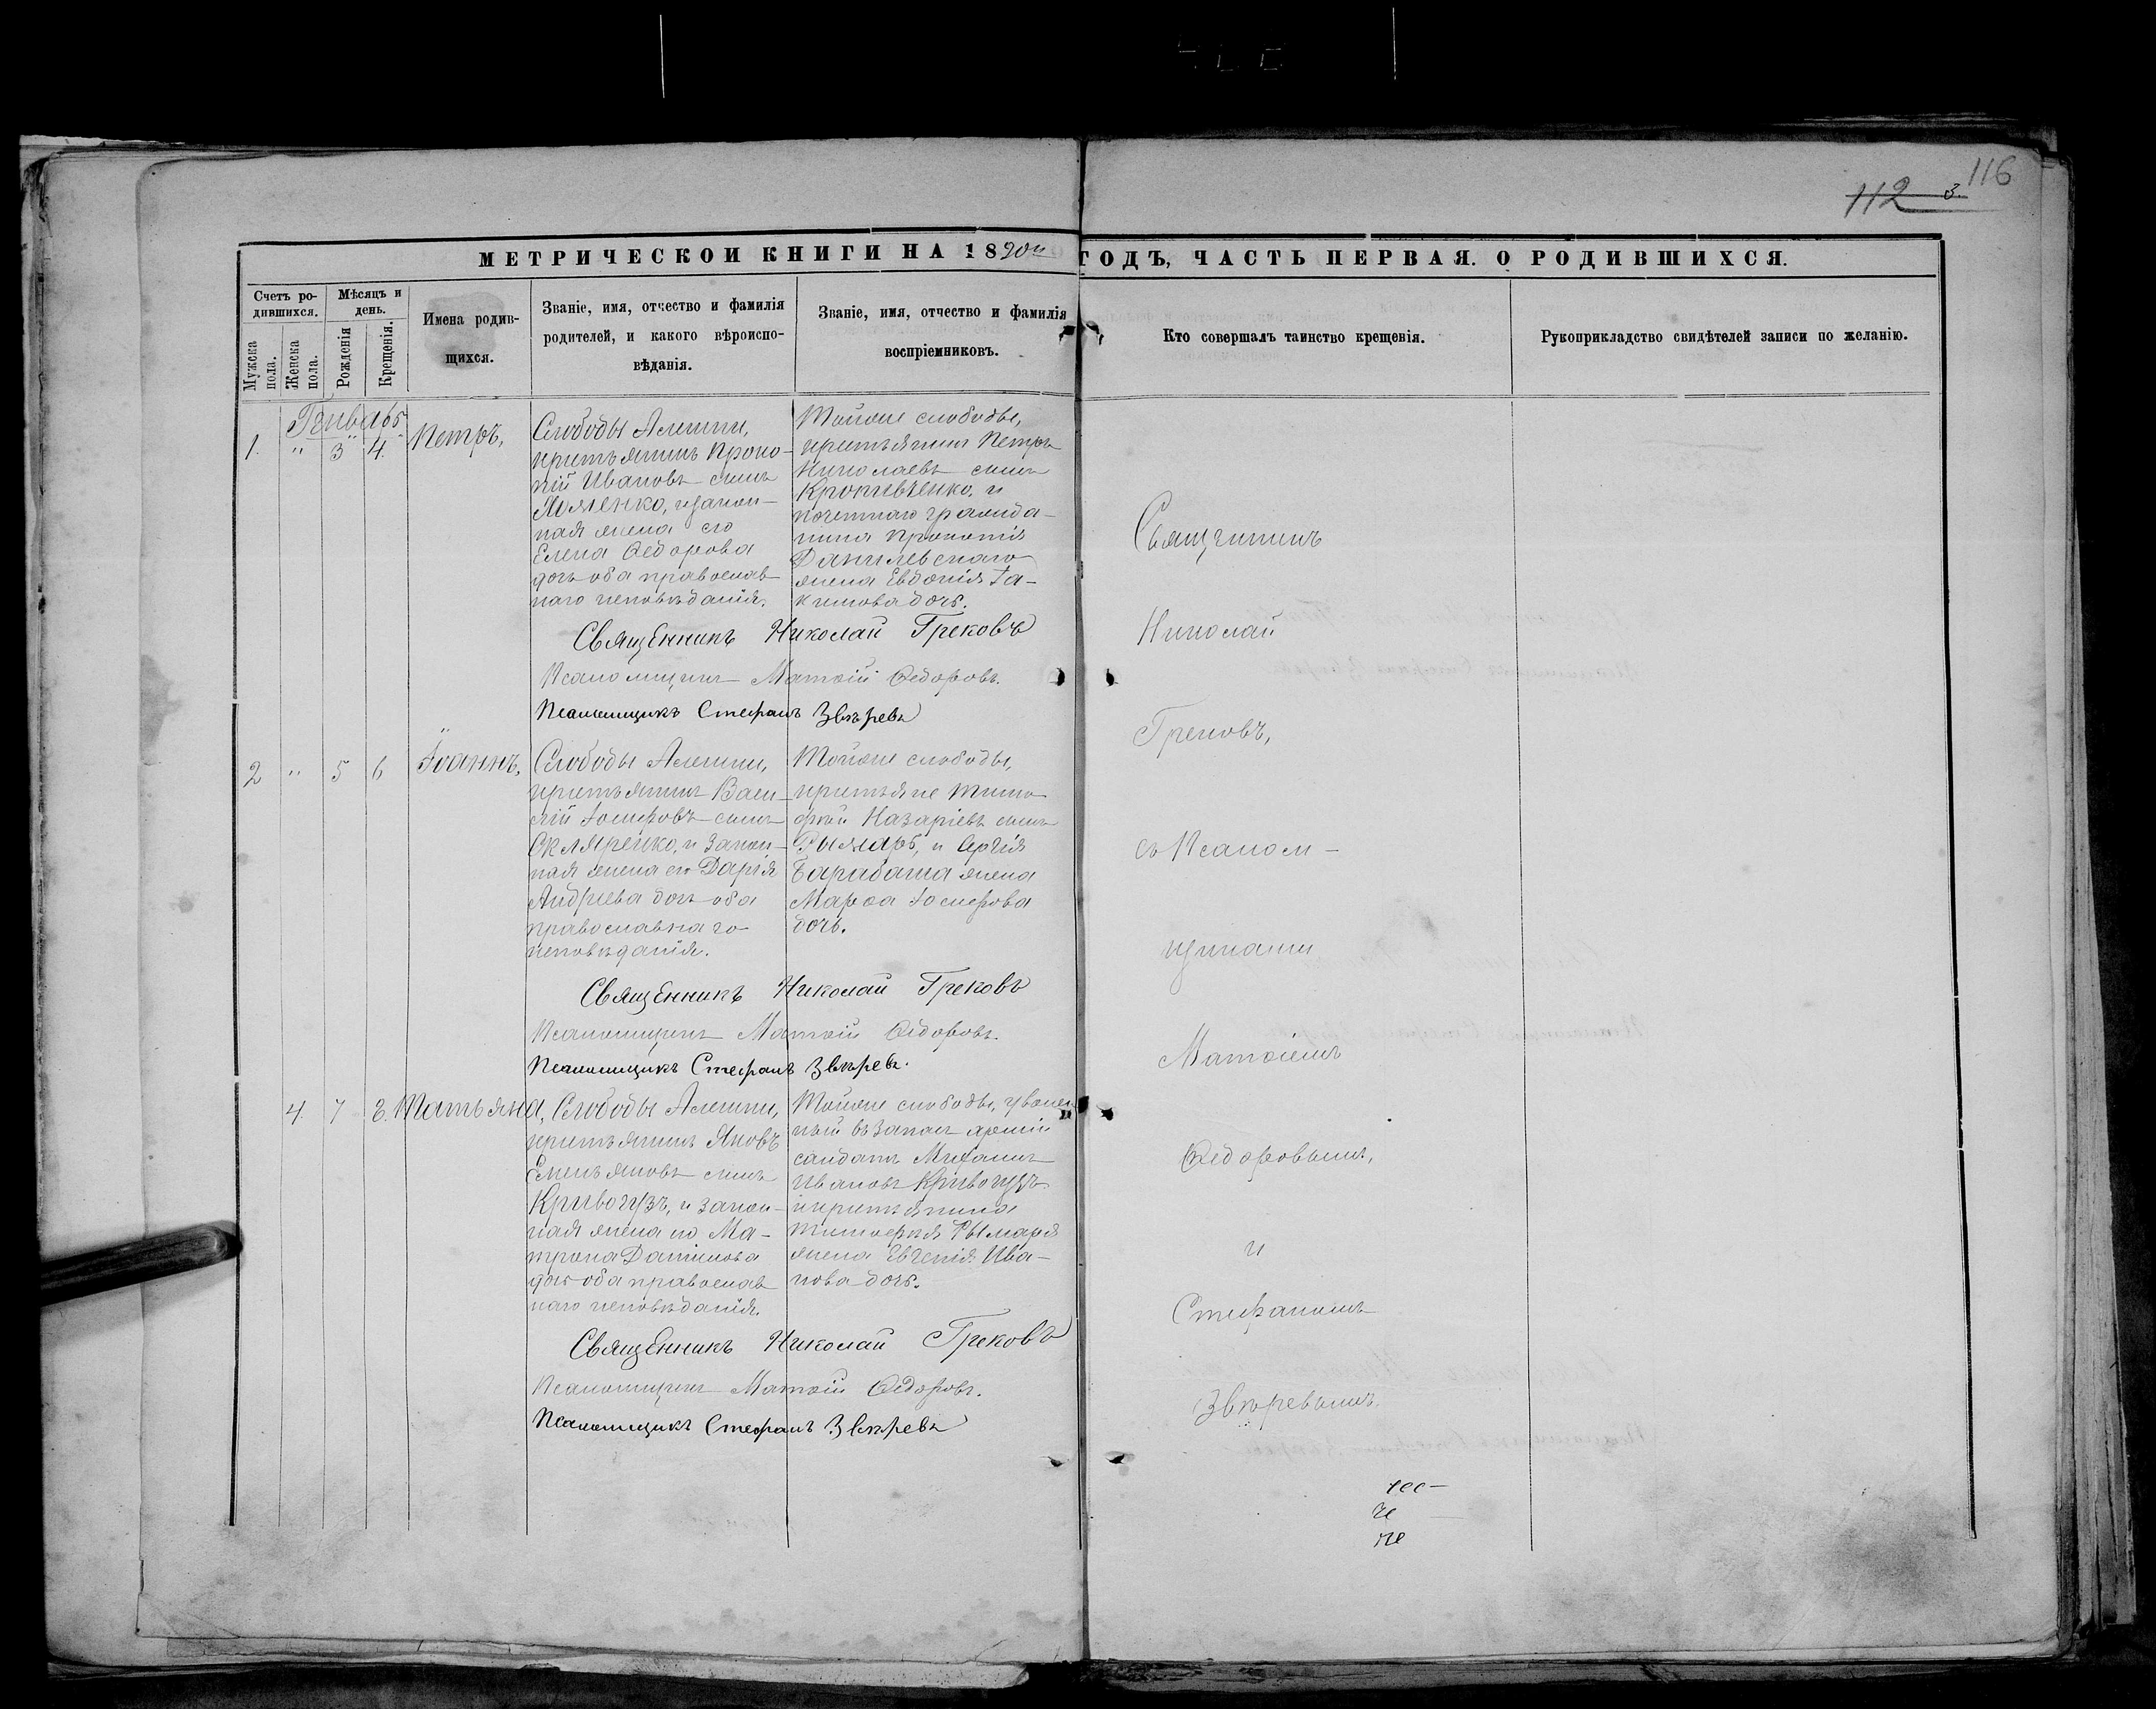 116
112 3.
МЕТРИЧЕСКОЙ КНИГИ НА 1890й ГОДЪ, ЧАСТЬ ПЕРВАЯ. О РОДИВШИХСЯ.
Счетъ ро-
дившихся.
Мужеска пола.
Женска пола.
Мѣсяцъ и
день.
Рожденія
Крещенія.
Имена родив-
шихся.
Званіе, имя, отчество и фамилія
родителей, и какого вѣроиспо-
вѣданія.
Званіе, имя, отчество и фамилія
воспріемниковъ.
Кто совершалъ таинство крещенія.
Рукоприкладство свидѣтелей записи по желанію.
Генварь
1. " 3 4. Петръ,
Слободы Алешки,
крестьянинъ Проко-
пій Ивановъ сынъ
и закон-
ная жена его
Елена Ѳедорова
дочь оба православ
наго исповѣданія.
Тойже слободы,
крестьянинъ Петръ
Николаевъ сынъ
Кропивченко, и
почетнаго гражда-
нина Прокопія
Данилевскаго
жена Евдокія Іа-
кимова дочь.
Священникъ Николай Грековъ
Псаломщикъ Матѳій Ѳедоровъ.
Псаломщикъ Стефанъ Звѣревъ
2 " 5 6 Іоаннъ,
Слободы Алешки,
крестьянинъ Васи-
лій Іосифовъ сынъ
Скляренко, и закон-
ная жена его Дарія
Андреева дочь оба
православнаго
исповѣданія.
Тойже слободы,
крестьяне Тимо-
фей Назаріевъ сынъ
Рымарь, и Сергія
Барабаша жена
Марѳа Іосифова
дочь.
Священникъ Николай Грековъ
Псаломщикъ Матѳій Ѳедоровъ.
Псаломщикъ Стефанъ Звѣревъ.
4. 7 8. Татьяна,
Слободы Алешки,
крестьянинъ Яковъ
Емельяновъ сынъ
Кривогузъ, и закон-
ная жена его Ма-
трона
дочь оба православ
наго исповѣданія.
Тойже слободы, уволен
ный въ запасъ арміи
солдатъ Михаилъ
Ивановъ Кривогузъ
и крестьянина
Тимоѳея Рымаря
жена Евгенія Ива-
нова дочь.
Священникъ Николай Грековъ
Псаломщикъ Матѳій Ѳедоровъ.
Псаломщикъ Стефанъ Звѣревъ
Священникъ
Николай
Грековъ,
съ Псалом-
щиками
Матѳіемъ
Ѳедоровымъ,
и
Стефаномъ
Звѣревымъ.